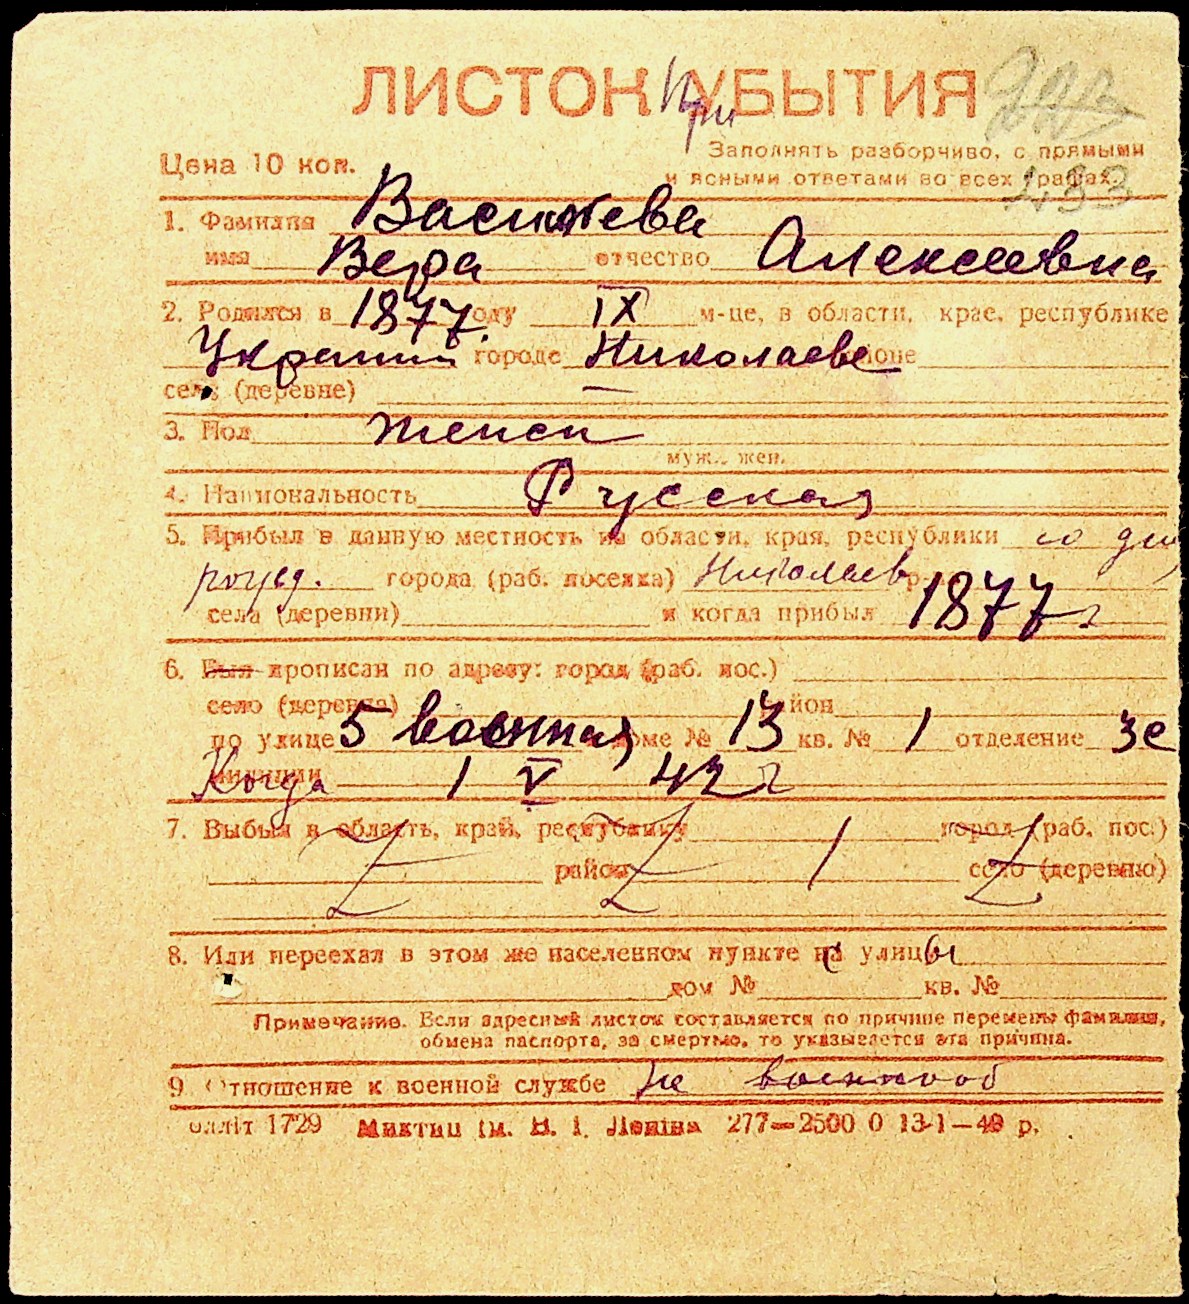 ЛИСТОК При УБЫТИЯ
Цена 10 коп.
Заполнять разборчиво, с прямыми
и ясными ответами во всех графах
493
1. Фамилия Васильева
имя Вера отчество Алексеевна
2. Родился в 1877 году IX м-це, в области, крае, республике
Украини городе Николаеве районе
селе (деревне) —
3. Пол женск
муж., жен.
4. Национальность Русская
5. Прибыл в данную местность из области, края, республики со дня
рожд. города (раб. поселка) Николаев
села (деревни) и когда прибыл 1877 г
6. Был прописан по адресу: город (раб. пос.)
село (деревня) район
по улице 5 военная доме № 13 кв. № 1 отделение 3е
милиции Когда 1 V 42 г
7. Выбыл в область, край, республику город (раб. пос.)
район село (деревню)
8. Или переехал в этом же населенном пункте с улицы
дом № кв. №
Примечание. Если адресный листок составляется по причине перемены фамилии,
обмена паспорта, за смертью, то указывается эта причина.
9 Отношение к военной службе Не военнооб
облліт 1729 Миктип ім. В. І. Леніна 277—2500 0 13-1—49 р.